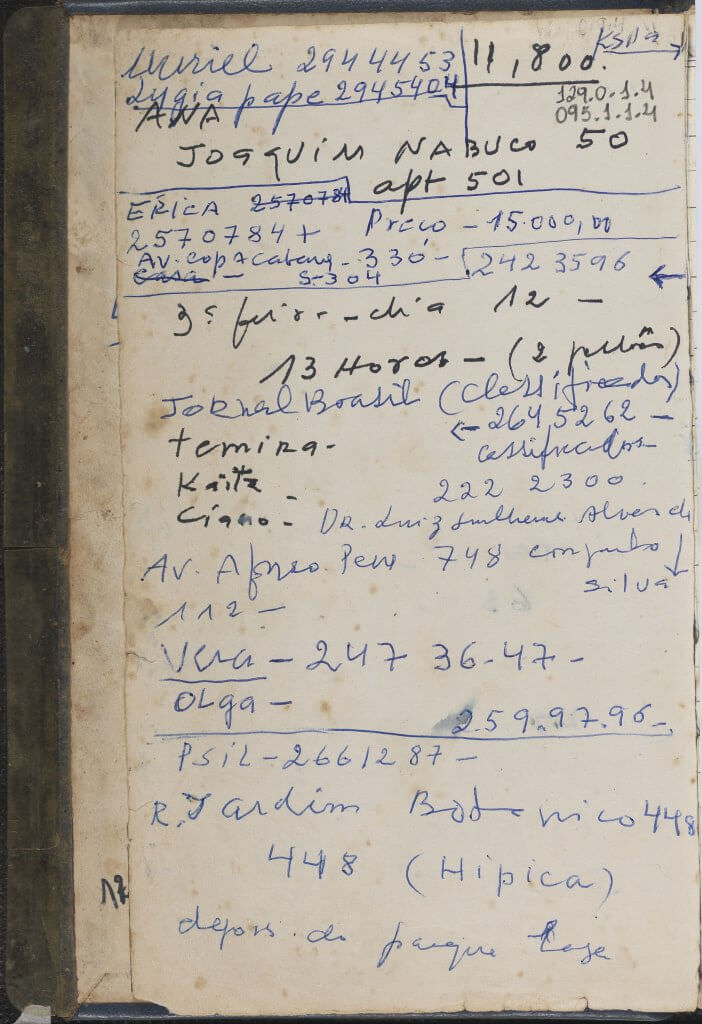 Muriel 2944453
Lygia pape 2945404
11,800.
129.0.1.4
095.1.1.4
ANA
JOAQUIM NABUCO 50
apt 501
ERICA 2570784
2570784+ Preço - 15.000,00
Av. copacabana - 330 - 2423596
Casa - S-304
3ª feira - dia 12 -
13 Horas - (2
Jornal Brasil (classificados)
← 264,5262 -
temira -
classificados
Kaita
222 2300.
Ciano - Dr. Luiz Guilherme Alves de
Av. Afonso Pena 748 conjunto
Silva
112 -
Vera - 247 36-47 -
OLga -
259.97.96 -
PSIL - 2661287 -
R. Jardim Botanico 448
448 (Hipica)
12
depois do parque Lage